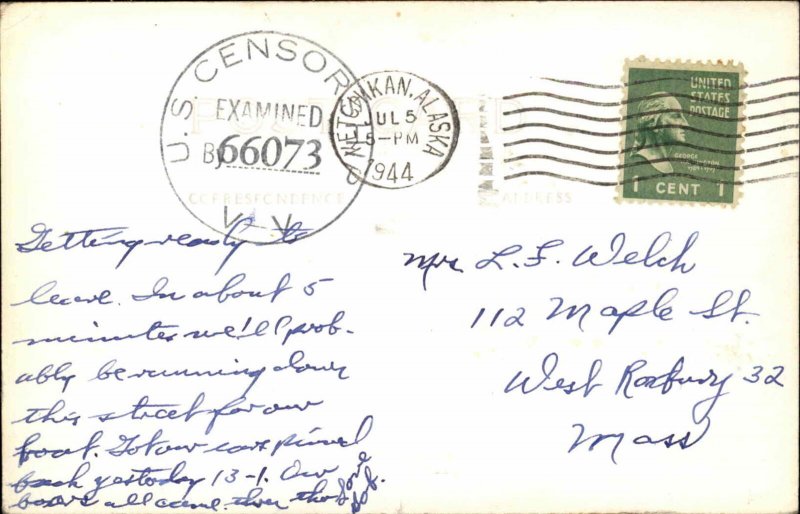 U.S. CENSOR
EXAMINED
By 66073
KETCHIKAN, ALASKA
JUL 5
5-PM
1944
UNITED
STATES
POSTAGE
GEORGE
WASHINGTON
1 CENT 1
POST CARD
CORRESPONDENCE
ADDRESS
Getting ready to
leave. In about 5
minutes we'll prob-
ably be running down
this street for our
boat. Got our ears pinned
back yesterday 13-1. Our
all came thru the
Mrs L. F. Welch
112 Maple St.
West Roxbury 32
Mass